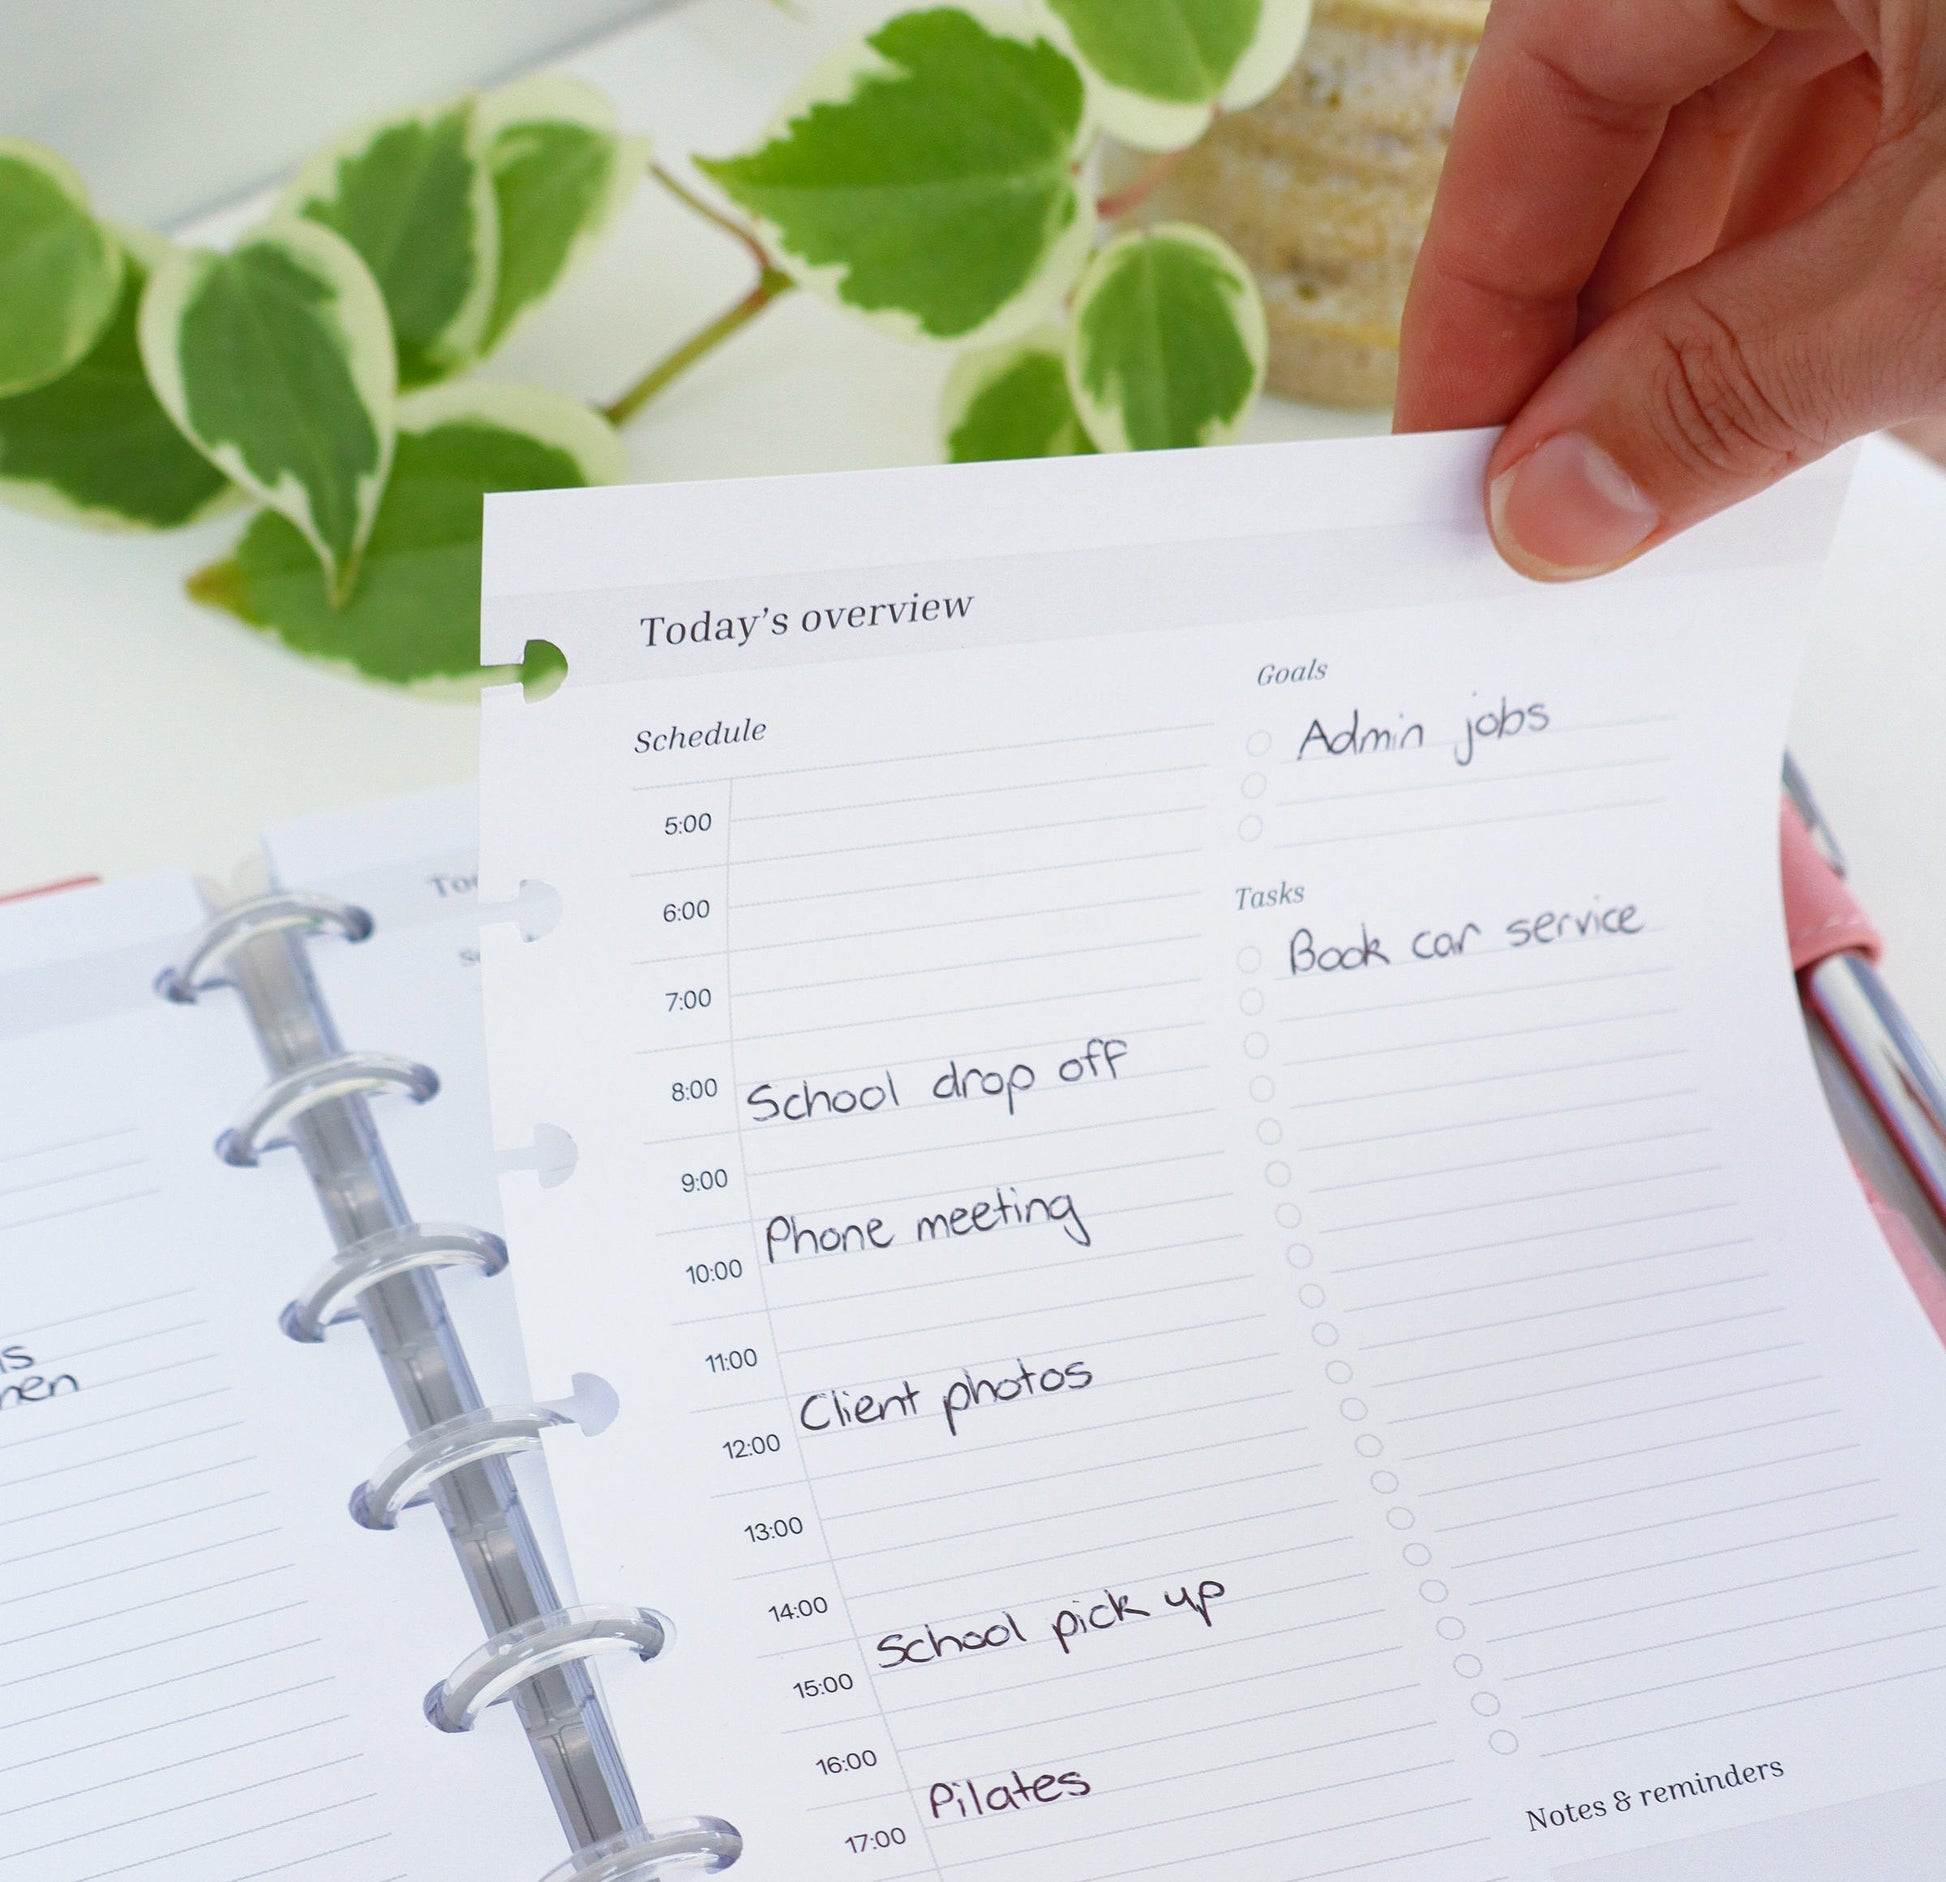 Today's overview
Schedule
5:00
6:00
7:00
8:00 School drop off
9:00
Phone meeting
10:00
11:00
Client photos
12:00
13:00
14:00
School pick up
15:00
16:00
Pilates
17:00
Goals
Admin jobs
Tasks
Book car service
Notes & reminders